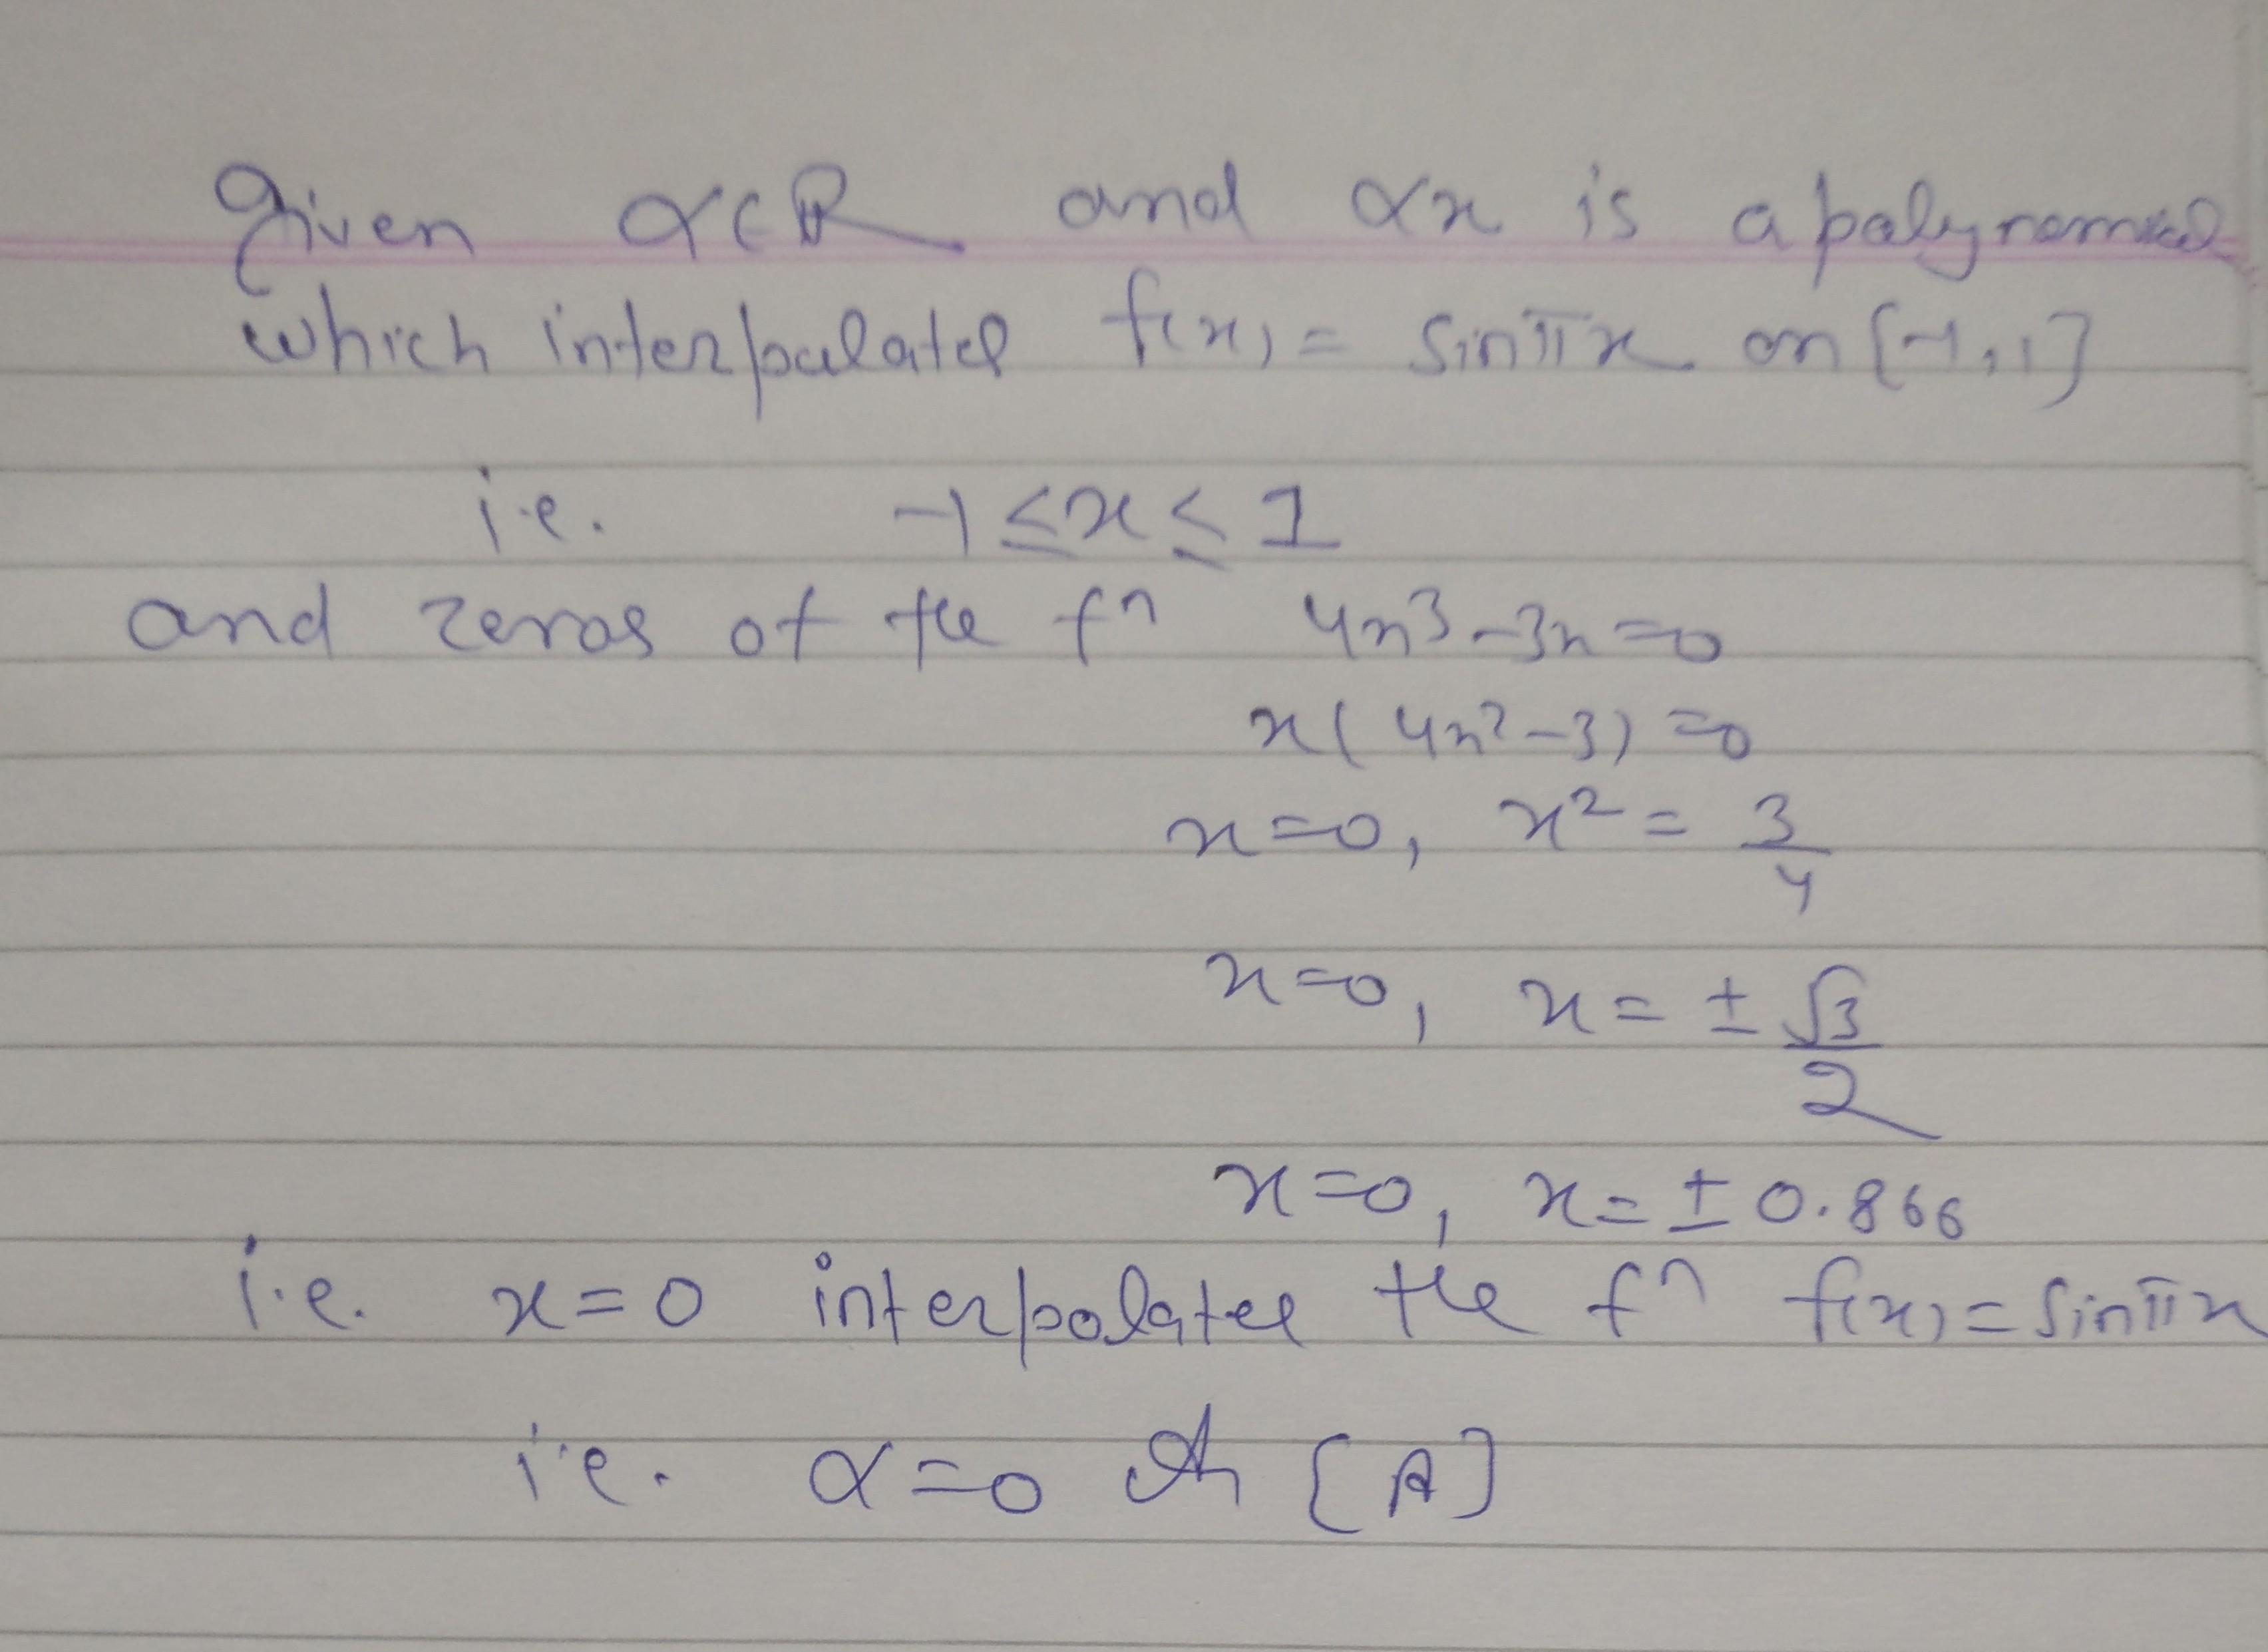 Given α∈R and αx is a polynomial
which interpolates f(x) = sinπx on [-1,1]
i.e. -1 ≤ x ≤ 1
and zeros of the fn 4x³-3x=0
x(4x²-3)=0
x=0, x² = 3/4
x=0, x = ± √3/2
x=0, x = ± 0.866
i.e. x=0 interpolates the fn f(x) = sinπx
i.e. α=0 [A]